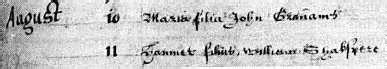 August 10 Maria filia John Grahams
11 Hamnet filius william Shakspere